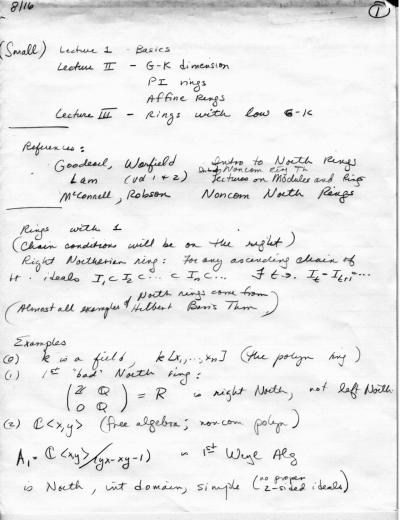 8/16
1
(Small) Lecture 1 - Basics
Lecture II - G-K dimension
PI rings
Affine Rings
Lecture III - Rings with low G-K
References:
Goodearl, Warfield Intro to Noeth Rings
Lam (vol 1 + 2) Intro Noncom Ring Th Lectures on Modules and Rings
McConnell, Robson Noncom Noeth Rings
Rings with 1
(Chain conditions will be on the right)
Right Noetherian ring: For any ascending chain of
rt. ideals I₁ ⊂ I₂ ⊂ ... ⊂ Iₙ ⊂ ... ∃ t ∋. I_t = I_{t+1} = ...
(Almost all examples of Noeth rings come from Hilbert Basis Thm)
Examples
(0) k is a field, k[x₁,...,xₙ] (the polyn ring)
(1) 1st "bad" Noeth ring:
(ℤ ℚ
0 ℚ) = R is right Noeth, not left Noeth
(2) ℂ<x,y> (free algebra; noncom polyn)
A₁ = ℂ<x,y>/(yx-xy-1) is 1st Weyl Alg
is Noeth, int domain, simple (no proper 2-sided ideals)